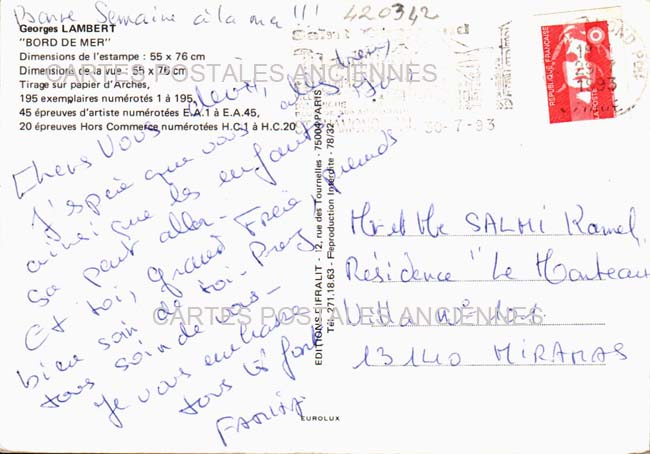 Bonne Semaine à la mer !!!
420342
Georges LAMBERT
"BORD DE MER"
Dimensions de l'estampe : 55 x 76 cm
Dimensions de la vue : 55 x 76 cm
Tirage sur papier d'Arches,
195 exemplaires numérotés 1 à 195,
45 épreuves d'artiste numérotées E.A.1 à E.A.45,
20 épreuves Hors Commerce numérotées H.C.1 à H.C.20
CARTES POSTALES ANCIENNES
Chers Vous deux,
J'espère que vous allez bien,
ainsi que les enfants.
sa peut aller.
Et toi, grand Frère prends
bien soin de toi.
tous soin de vous.
Je vous embrasse
tous très fort
FARIDA
EDITIONS DIFRALIT - 12, rue des Tournelles - 75004 PARIS
Tél. 271.18.63 - Reproduction Interdite - 78/32
EUROLUX
RÉPUBLIQUE FRANÇAISE
LA POSTE
30-7-93
Mr et Me SALMI Kamel
Résidence "Le Monteau
Villa n°
13140 MIRAMAS
CARTES POSTALES ANCIENNES